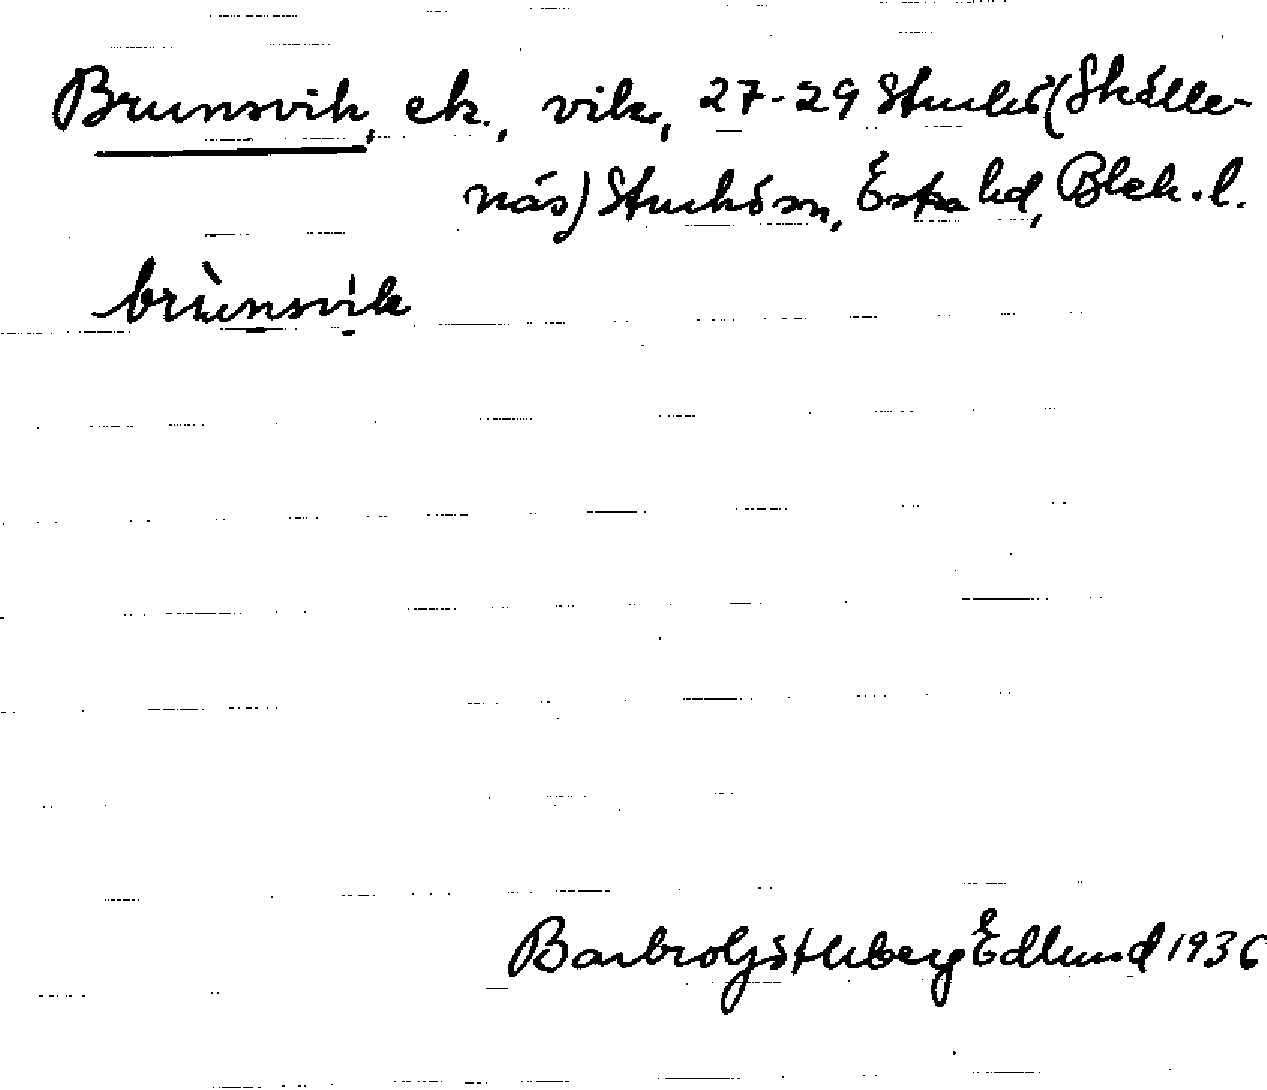 Brunsvik, ek., vik, 27-29 Sturkö (Skälle-
näs) Sturkö sn, Östra hd, Blek. l.
brùnsvik
Barbro Götherberg Edlund 1936